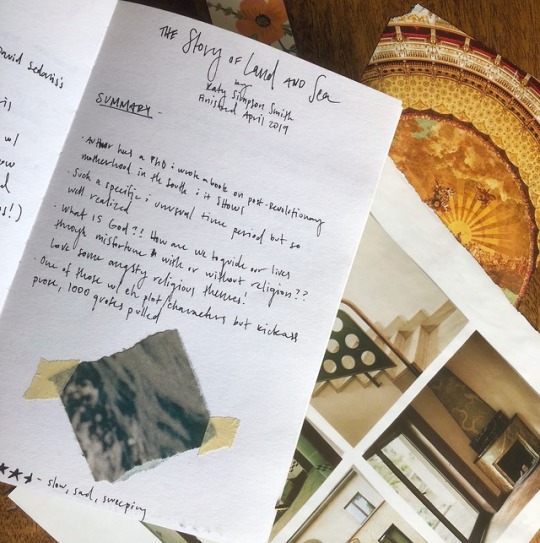 David Sedaris's
w/
THE Story of Land AND Sea
by
Katy Simpson Smith
Finished April 2019
SUMMARY -
· Author has a PhD & wrote a book on post-revolutionary
motherhood in the South & it SHOWS
· Such a specific & unusual time period but so
well realized
· What is God?? How are we to guide our lives
through misfortune & with or without religion??
Love some angsty religious themes!
· One of those w/ eh plot/characters but kickass
prose, 1000 quotes pulled
- slow, sad, sweeping